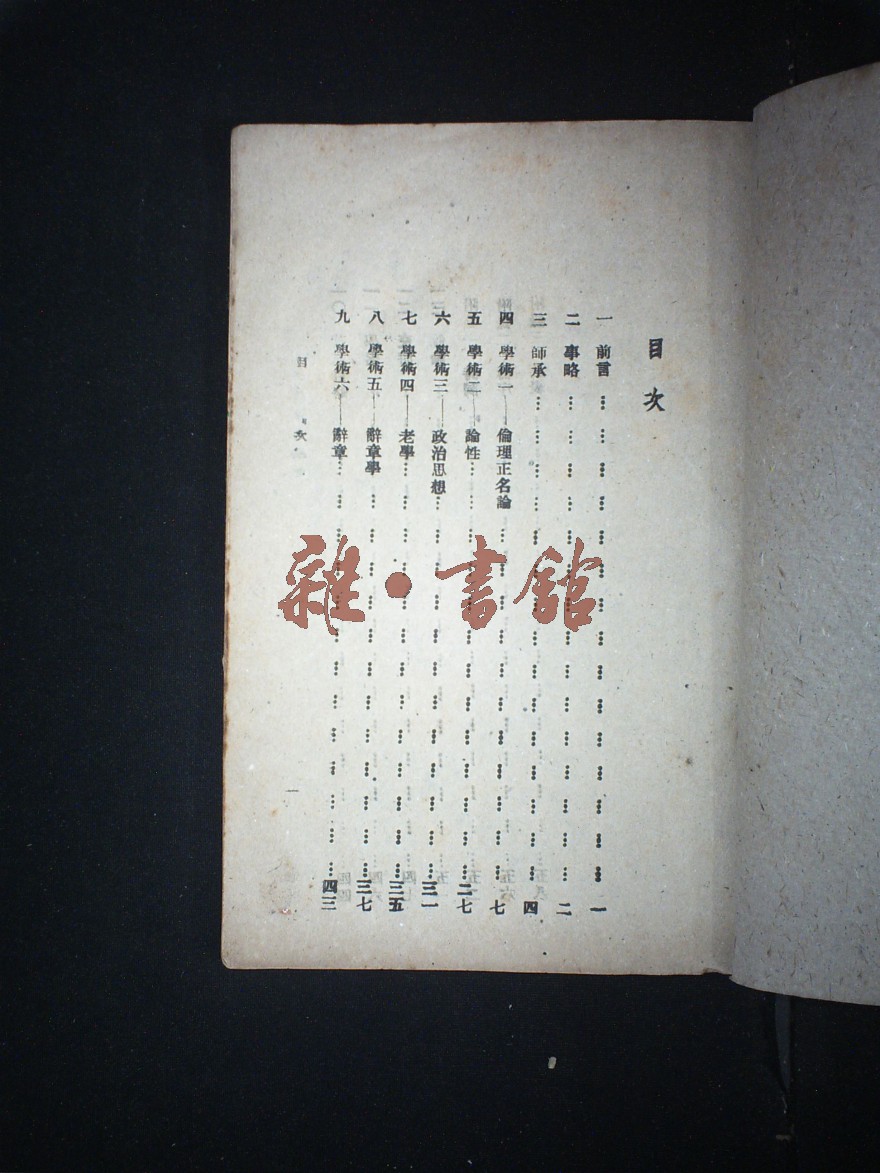 目次
一 前言……一
二 事略……二
三 師承……四
四 學術一——倫理正名論……七
五 學術二——論性……二七
六 學術三——政治思想……三一
七 學術四——老學……三五
八 學術五——辭章學……三七
九 學術六——辭章……四三
目次
一
雜·書館